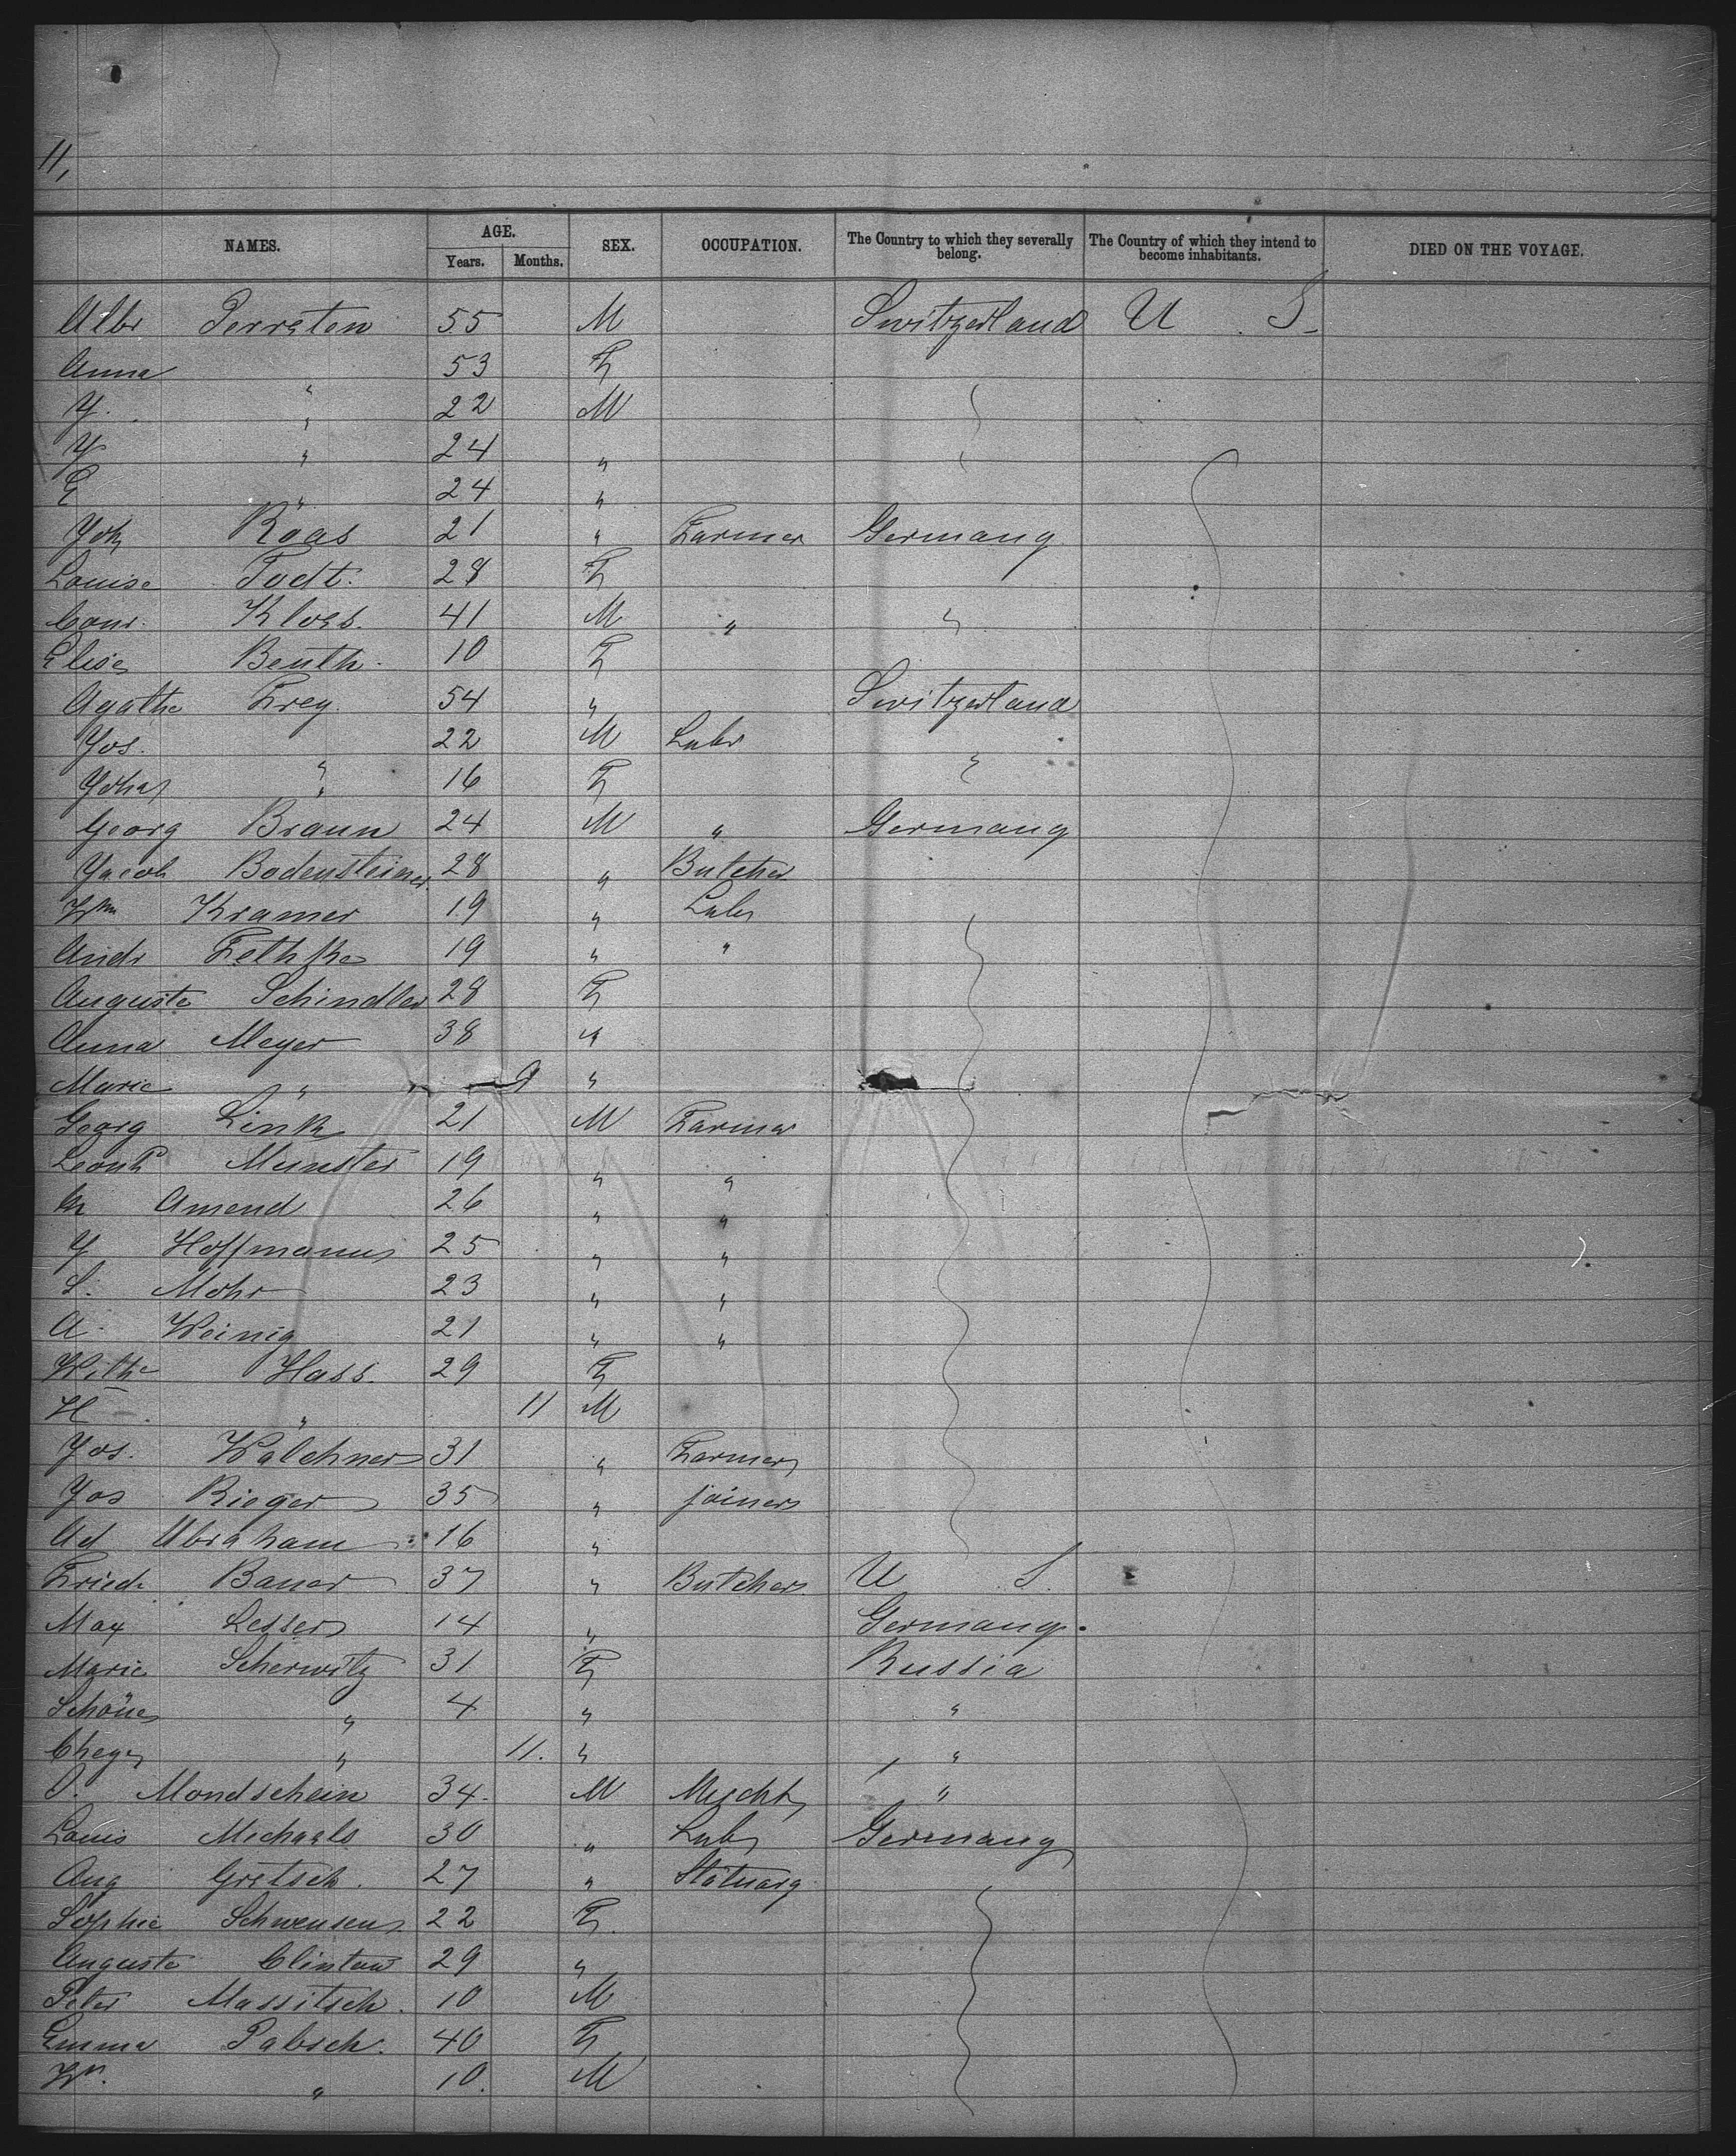 11,
NAMES. AGE. Years. Months. SEX. OCCUPATION. The Country to which they severally belong. The Country of which they intend to become inhabitants. DIED ON THE VOYAGE.
Albr Perreten 55 M Switzerland U S.
Anna " 53 F
Y. " 22 M
Y " 24 "
E " 24 "
Joh Roas 21 " Farmer Germany
Louise Todt. 28 F
Conr. Kloss. 41 M " "
Elise Beuth. 10 F
Agathe Frey. 54 " Switzerland
Jos. " 22 M Labr "
Joha " 16 F
Georg Braun 24 M " Germany
Jacob Bodensteiner. 28 " Butcher
Wm Kramer 19 " Labr
Andr Fethke 19 " "
Auguste Schindler 28 F
Anna Meyer 38 "
Marie " 9 "
Georg Link 21 M Farmer
Leonh Munster 19 " "
M Amend 26 " "
J Hoffmann 25 " "
L. Mohr 23 " "
A. Weinig 21 " "
Withe Hass. 29 F
H " 11 M
Jos. Walchner 31 " Farmer
Jos Rieger 35 " joiner
Ad Abraham 16 "
Friedr Bauer 37 " Butcher U S.
Max Lesser 14 " Germany.
Marie Scherwitz 31 F Russia
Schöne " 4 " "
Cheye " 11. " "
J. Mondschein 34. M Mercht "
Louis Michaels 30 " Labr Germany
Aug Gretsch. 27 " Statuary
Sophie Schwensen 22 F.
Auguste Clinton 29 "
Peter Massitsch. 10 M
Emma Pabsch. 40 F
Wm. " 10. M